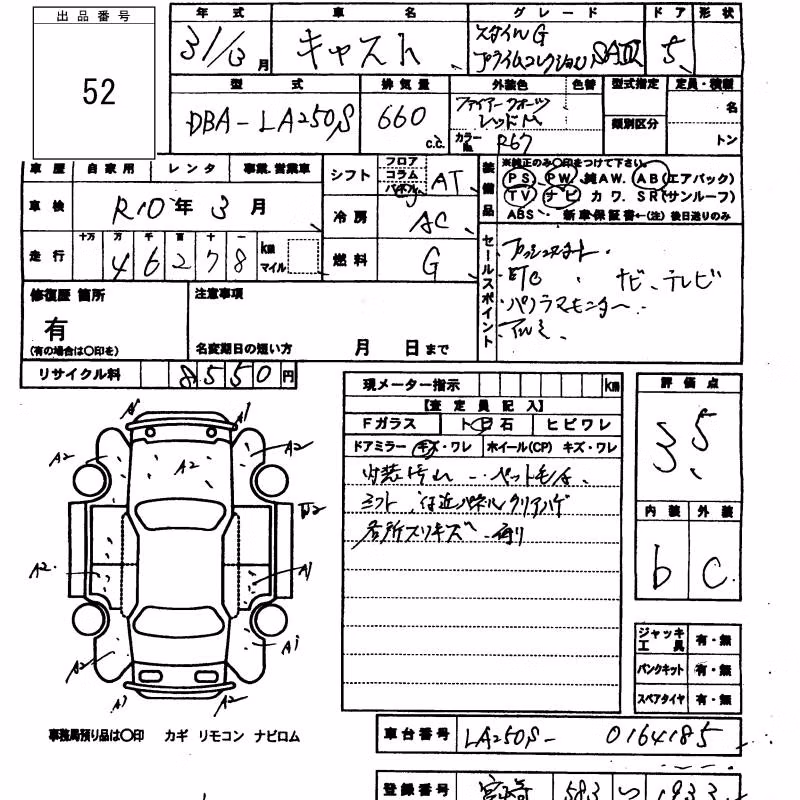 出品番号
52
年式 車名 グレード ドア 形状
31/13月 キャスト スタイルG プライムコレクションSAⅢ 5
型式 排気量 外装色 色替 型式指定 定員・積載
DBA-LA250S 660 c.c. ファイアークォーツレッドM 類別区分 名
カラーNo. R67 トン
車歴 自家用 レンタ 事業.営業車
シフト フロア コラム パネル AT
装備品 ※純正のみ〇印をつけて下さい。
PS PW 純AW. AB(エアバック)
TV ナビ カワ. SR(サンルーフ)
ABS 新車保証書←(注)後日送りのみ
車検 R10年3月
冷房 AC
走行 十万 万 千 百 十 一
46278 km マイル
燃料 G
セールスポイント プッシュスタート.
ETC ナビ、テレビ
パノラマモニター
アルミ
修復歴 箇所
有
(有の場合は〇印を)
注意事項
名変期日の短い方 月 日まで
リサイクル料 8550円
現メーター指示 km
【査定員記入】
Fガラス ト ビ 石 ヒビワレ
ドアミラー キズ・ワレ ホイール(CP) キズ・ワレ
内装汚れ ペット毛
シフト付近パネルクリアハゲ
各所スリキズ 有り
評価点
3.5
内装 外装
b C
ジャッキ 工具 有・無
パンクキット 有・無
スペアタイヤ 有・無
A1 A1
A2 A2 A2
A2
A2 A1
A1
A2 A2
A1
事務局預り品は〇印 カギ リモコン ナビロム
車台番号 LA250S- 0164185
登録番号 宮崎 583 つ 1933